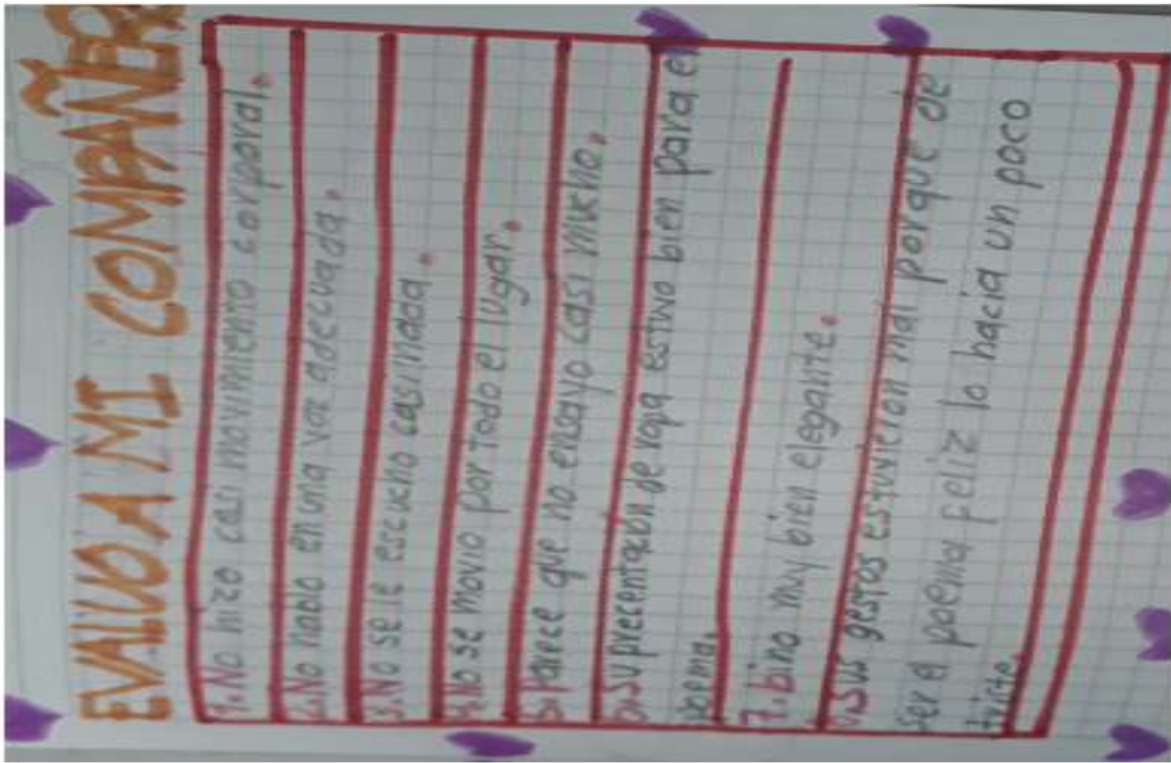 EVALUO A MI COMPAÑER
1. No hizo casi movimiento corporal.
2. No hablo en una voz adecuada.
3. No se le escucho casi nada.
4. No se movio por todo el lugar.
5. Parece que no ensayo casi mucho.
6. Su precentación de ropa estuvo bien para el
poema.
7. bino muy bien elegante.
8. Sus gestos estuvieron mal porque de
ser el poema feliz lo hacia un poco
triste.